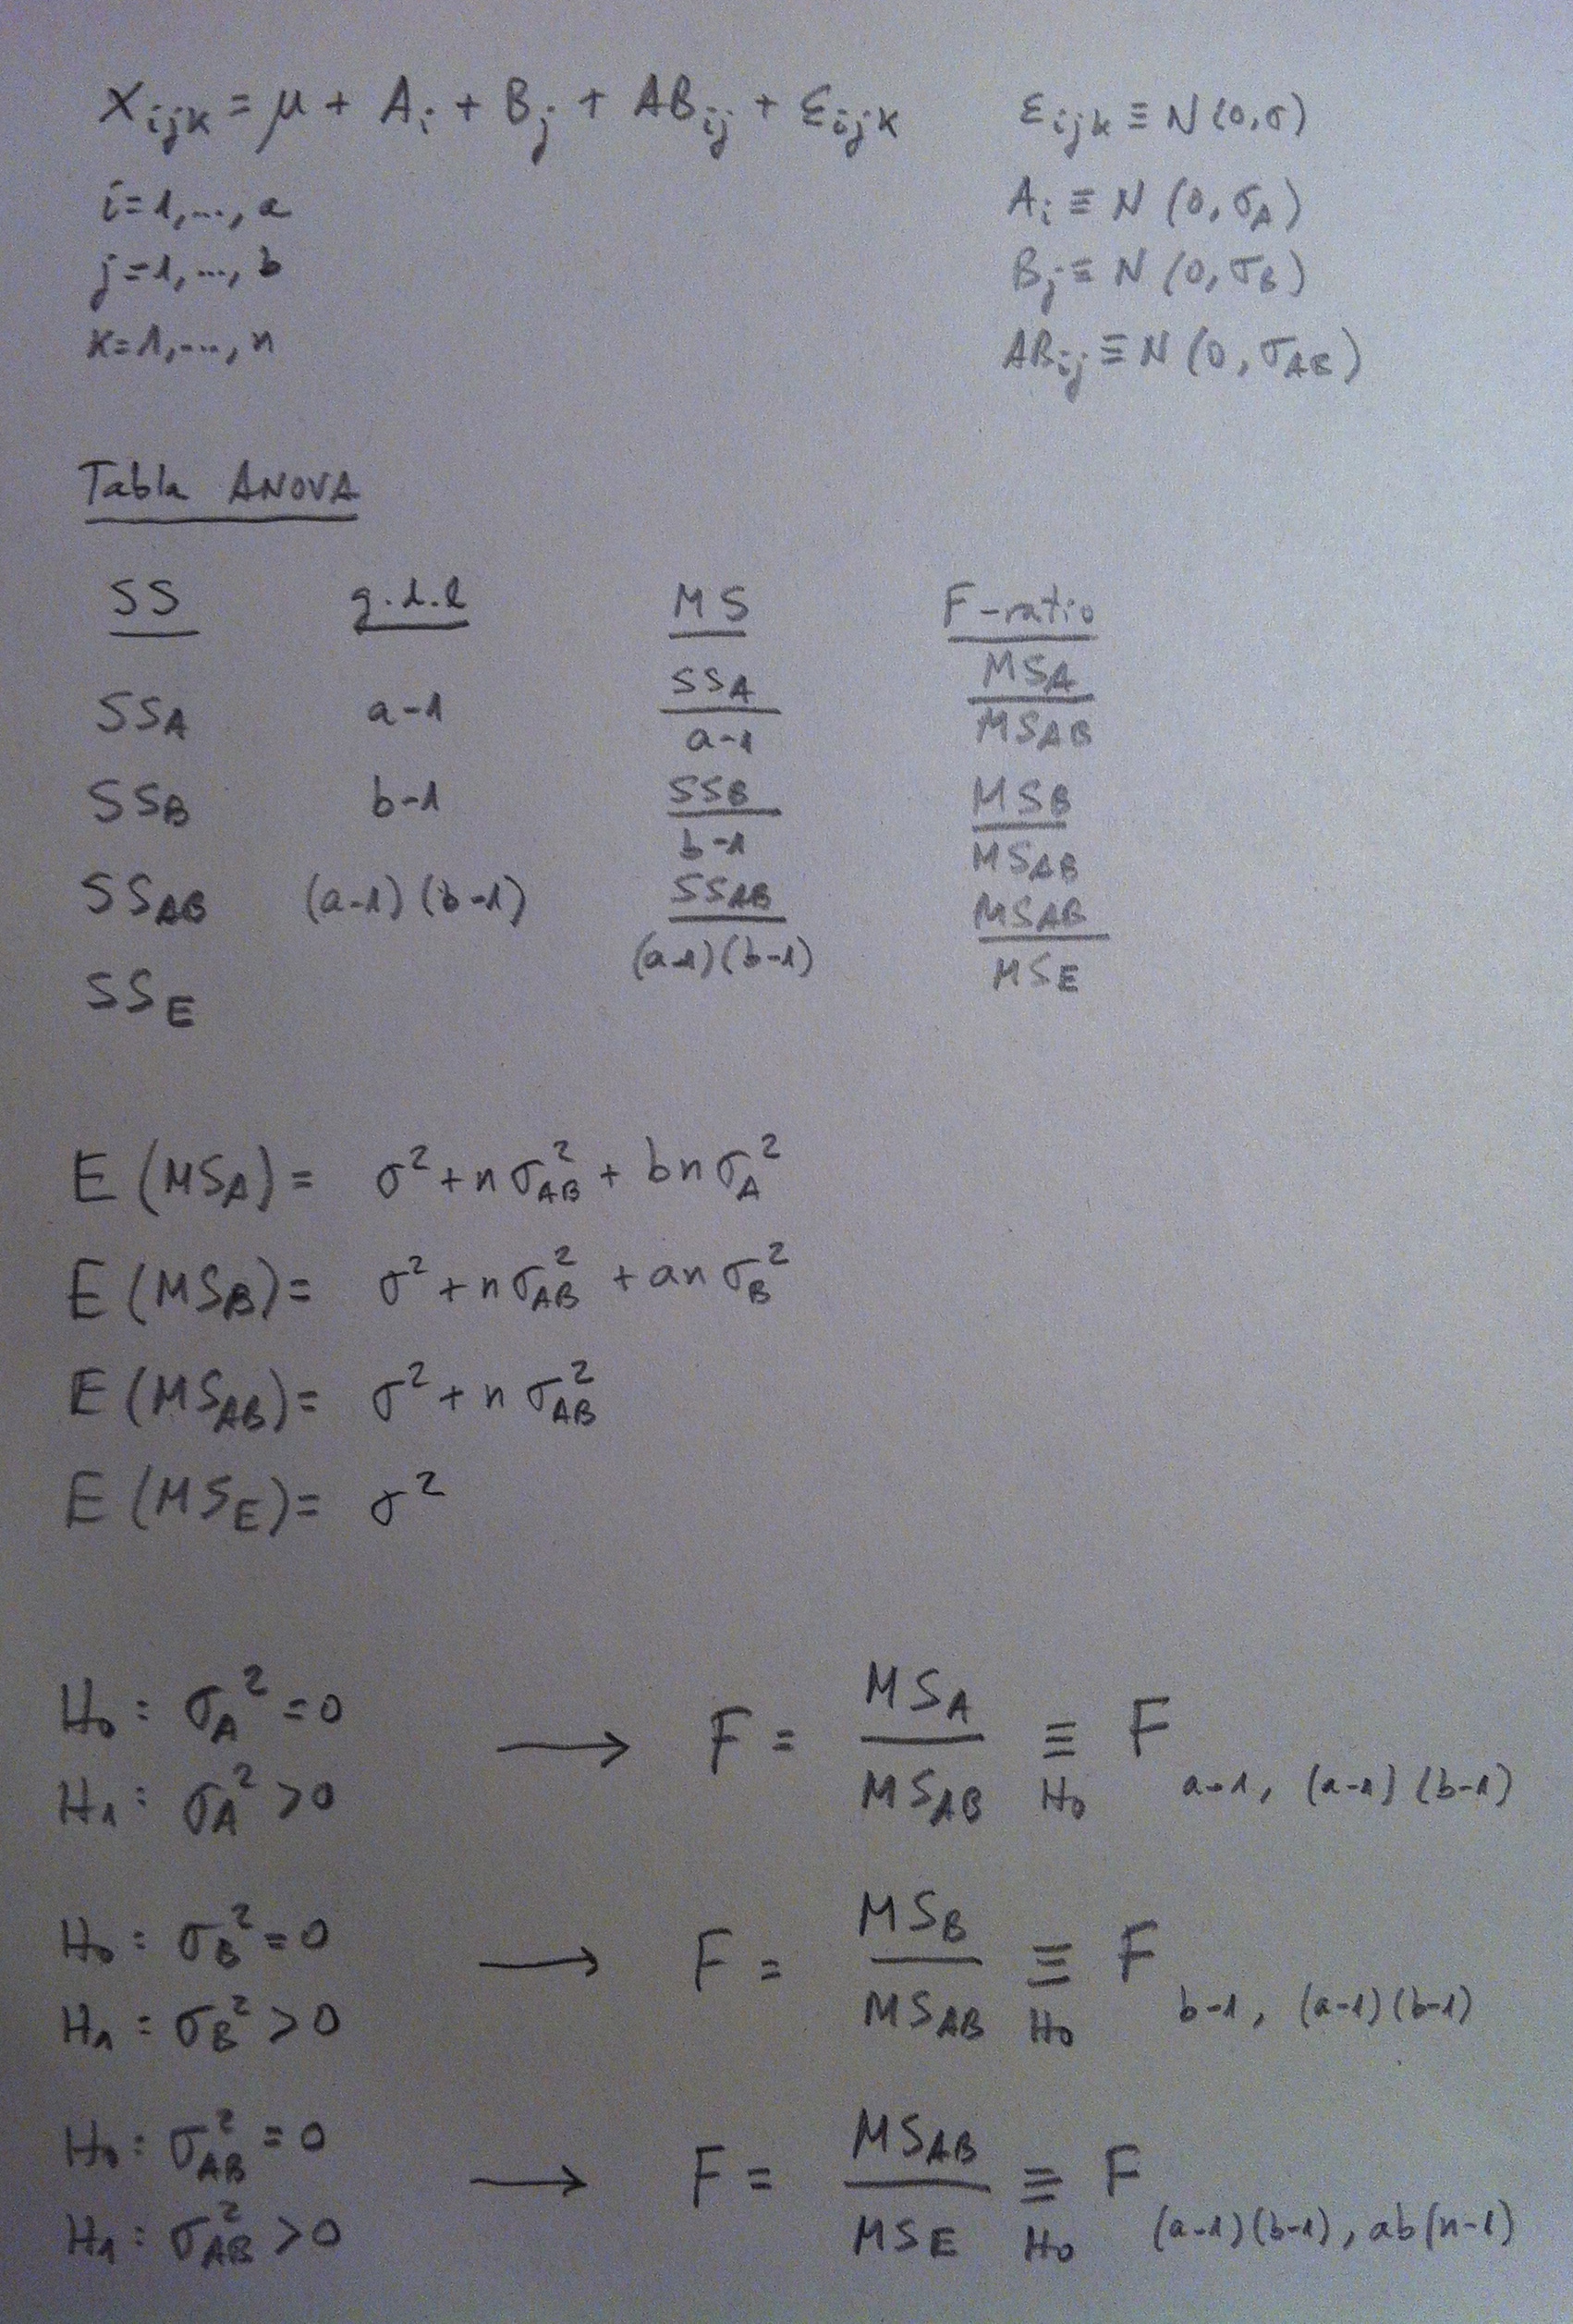 X_ijk = μ + A_i + B_j + AB_ij + ε_ijk    ε_ijk ≡ N(0,σ)
i=1,...,a    A_i ≡ N(0,σ_A)
j=1,...,b    B_j ≡ N(0,σ_B)
k=1,...,n    AB_ij ≡ N(0,σ_AB)
Tabla ANOVA
SS    g.d.l    MS    F-ratio
SS_A    a-1    SS_A/(a-1)    MS_A/MS_AB
SS_B    b-1    SS_B/(b-1)    MS_B/MS_AB
SS_AB    (a-1)(b-1)    SS_AB/((a-1)(b-1))    MS_AB/MS_E
SS_E
E(MS_A) = σ² + nσ²_AB + bnσ_A²
E(MS_B) = σ² + nσ²_AB + anσ_B²
E(MS_AB) = σ² + nσ²_AB
E(MS_E) = σ²
H_0: σ_A² = 0
H_1: σ_A² > 0    →    F = MS_A/MS_AB ≡_H_0 F_a-1, (a-1)(b-1)
H_0: σ_B² = 0
H_1: σ_B² > 0    →    F = MS_B/MS_AB ≡_H_0 F_b-1, (a-1)(b-1)
H_0: σ²_AB = 0
H_1: σ²_AB > 0    →    F = MS_AB/MS_E ≡_H_0 F_(a-1)(b-1), ab(n-1)